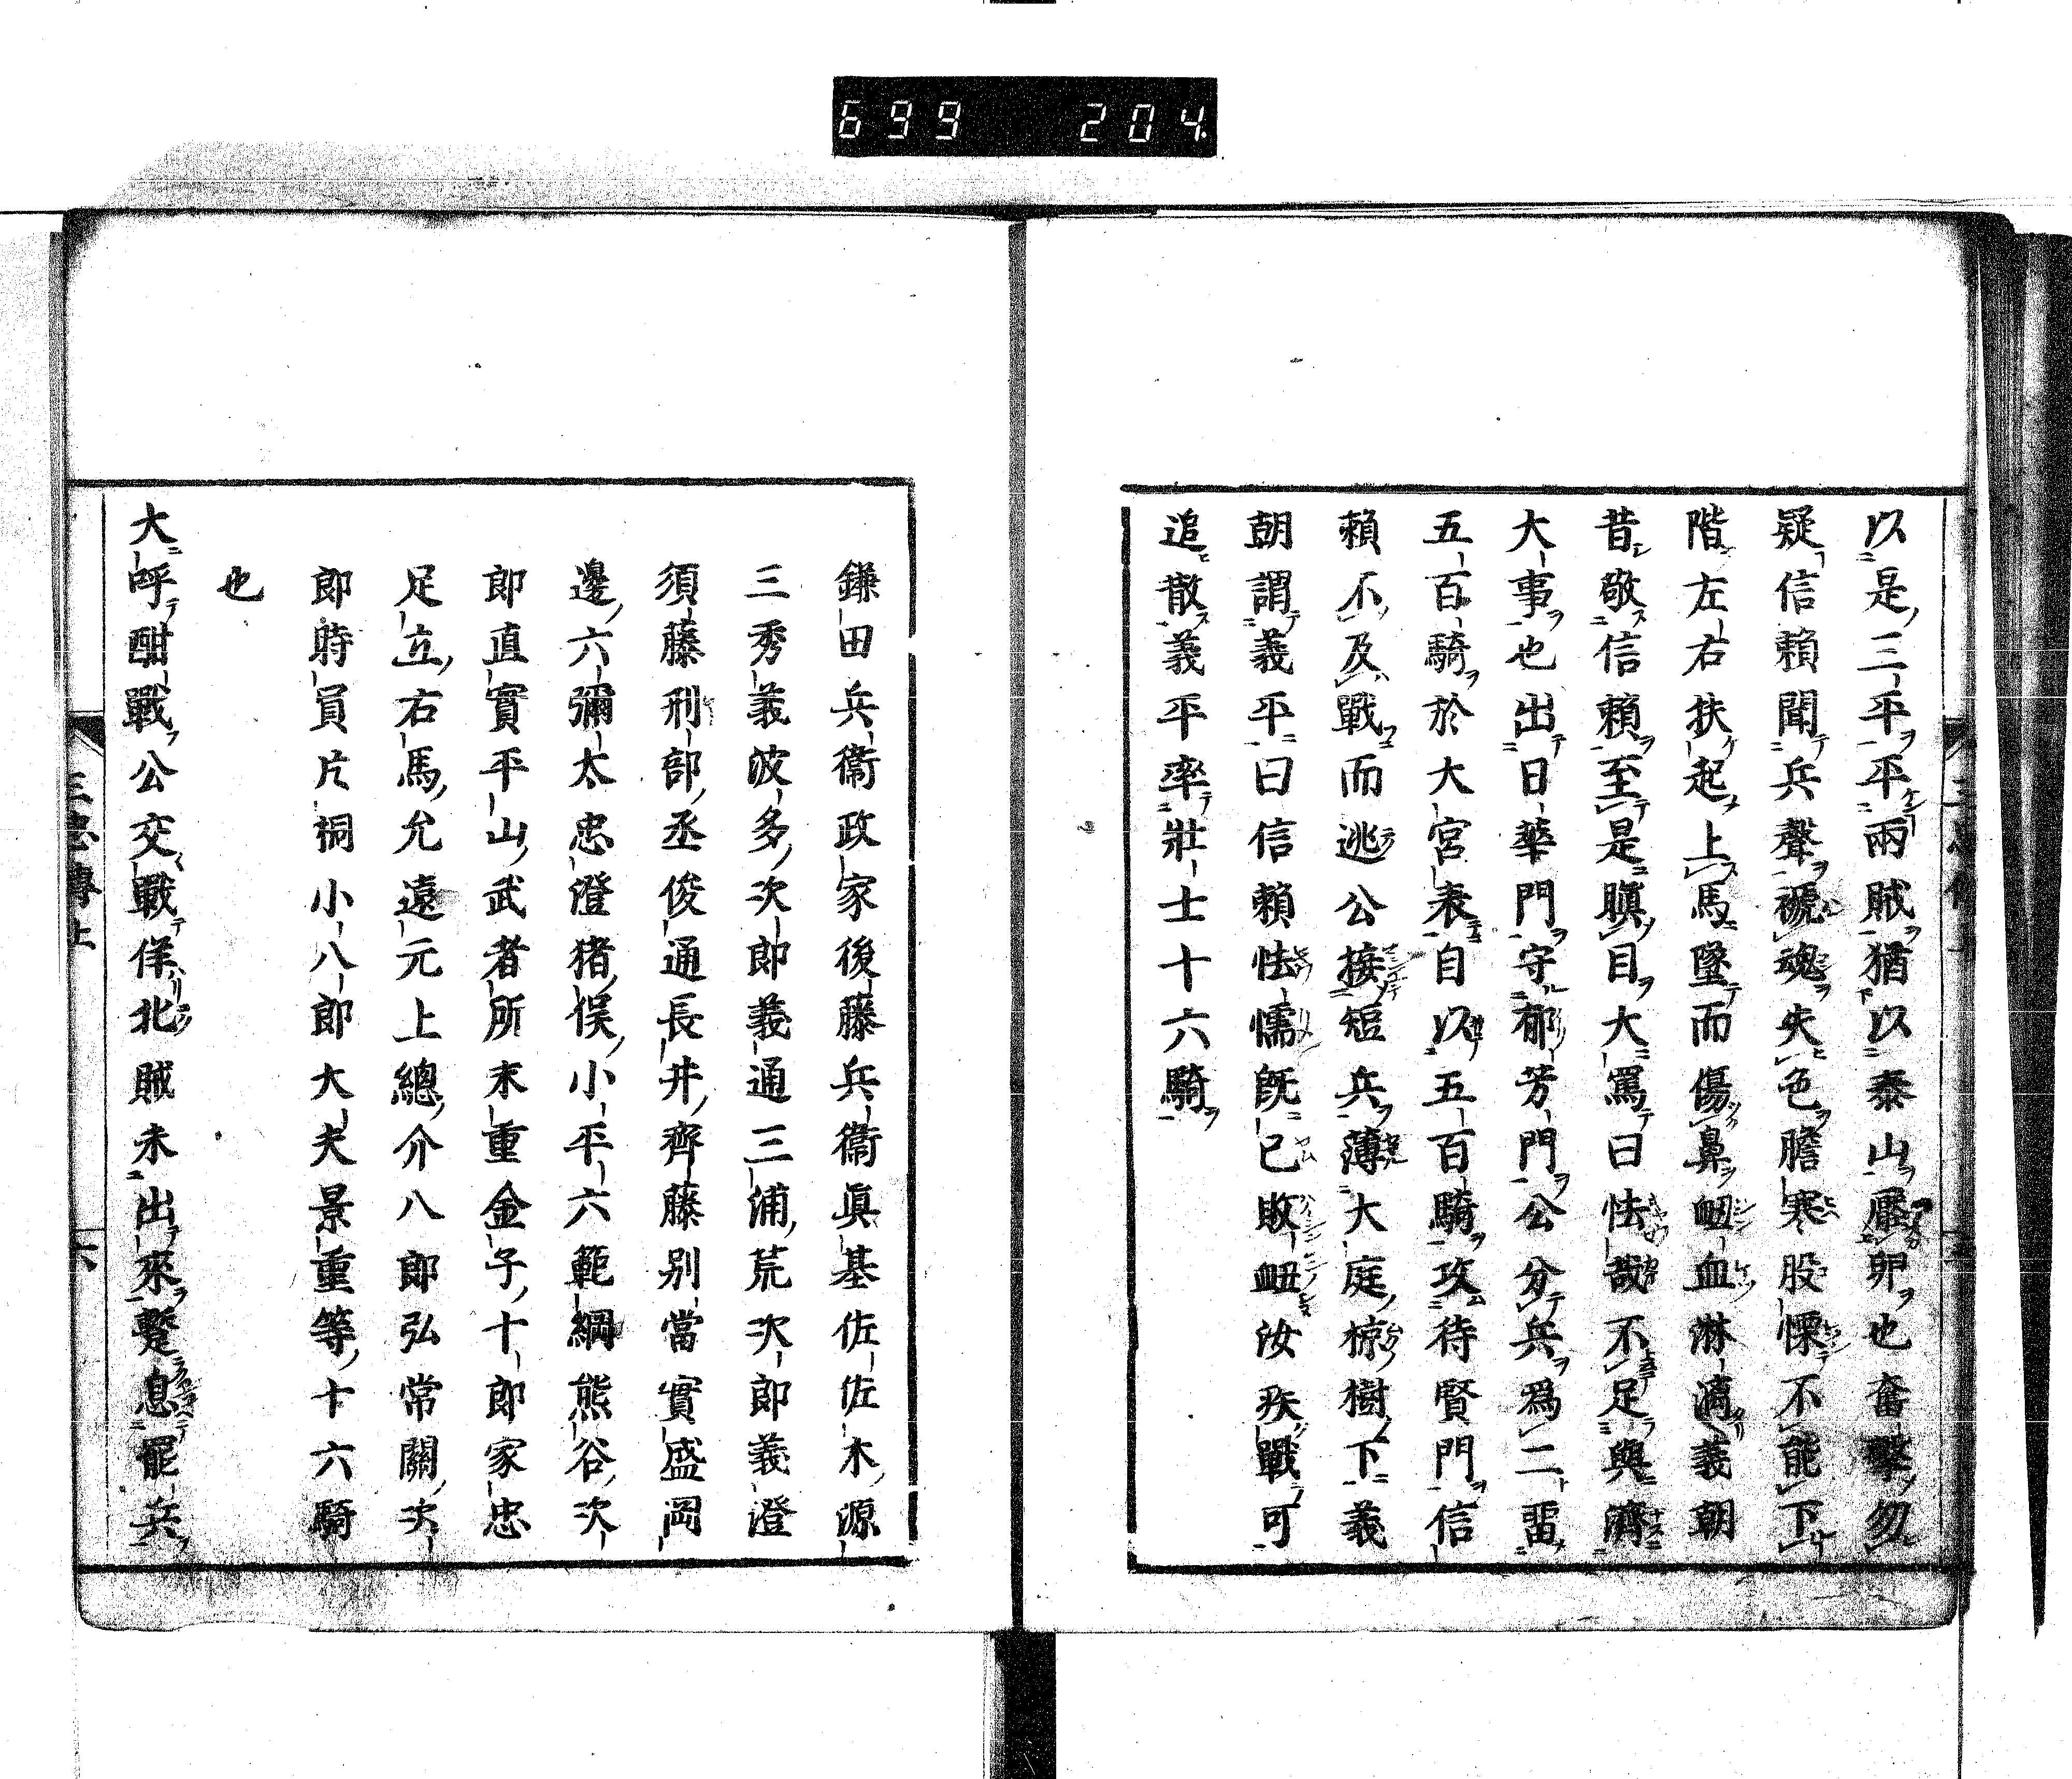 699 204
以是三平平兩賊猶以泰山壓卵也奮擊勿
疑信賴聞兵聲褫魂失色膽寒股慄不能下
階左右扶起上馬墜而傷鼻衄血淋漓義朝
昔敬信賴至是瞋目大罵曰怯哉不足與濟
大事也出日華門守郁芳門公分兵爲二畱
五百騎於大宮表自以五百騎攻待賢門信
賴不及戰而逃公接短兵薄大庭椋樹下義
朝謂義平曰信賴怯懦既已敗衄汝疾戰可
追散義平率壯士十六騎
鎌田兵衞政家後藤兵衞眞基佐佐木源
三秀義波多次郎義通三浦荒次郎義澄
須藤刑部丞俊通長井齊藤別當實盛岡
邊六彌太忠澄猪俣小平六範綱熊谷次
郎直實平山武者所末重金子十郎家忠
足立右馬允遠元上總介八郎弘常關次
郎時員片桐小八郎大夫景重等十六騎
也
大呼酣戰公交戰佯北賊未出來蹔息罷兵
三忠傳上 六